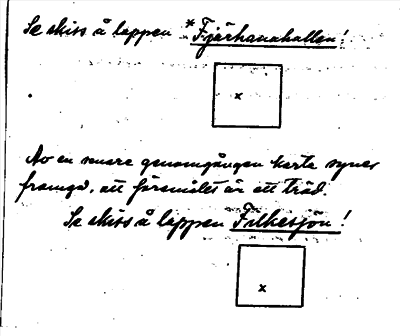 Se skiss å lappen "Fjärhanahallen!
x
Av en snare genomgången karta synes
framgå, att föremålet är ett träd.
Se skiss å lappen Filkesjön!
x